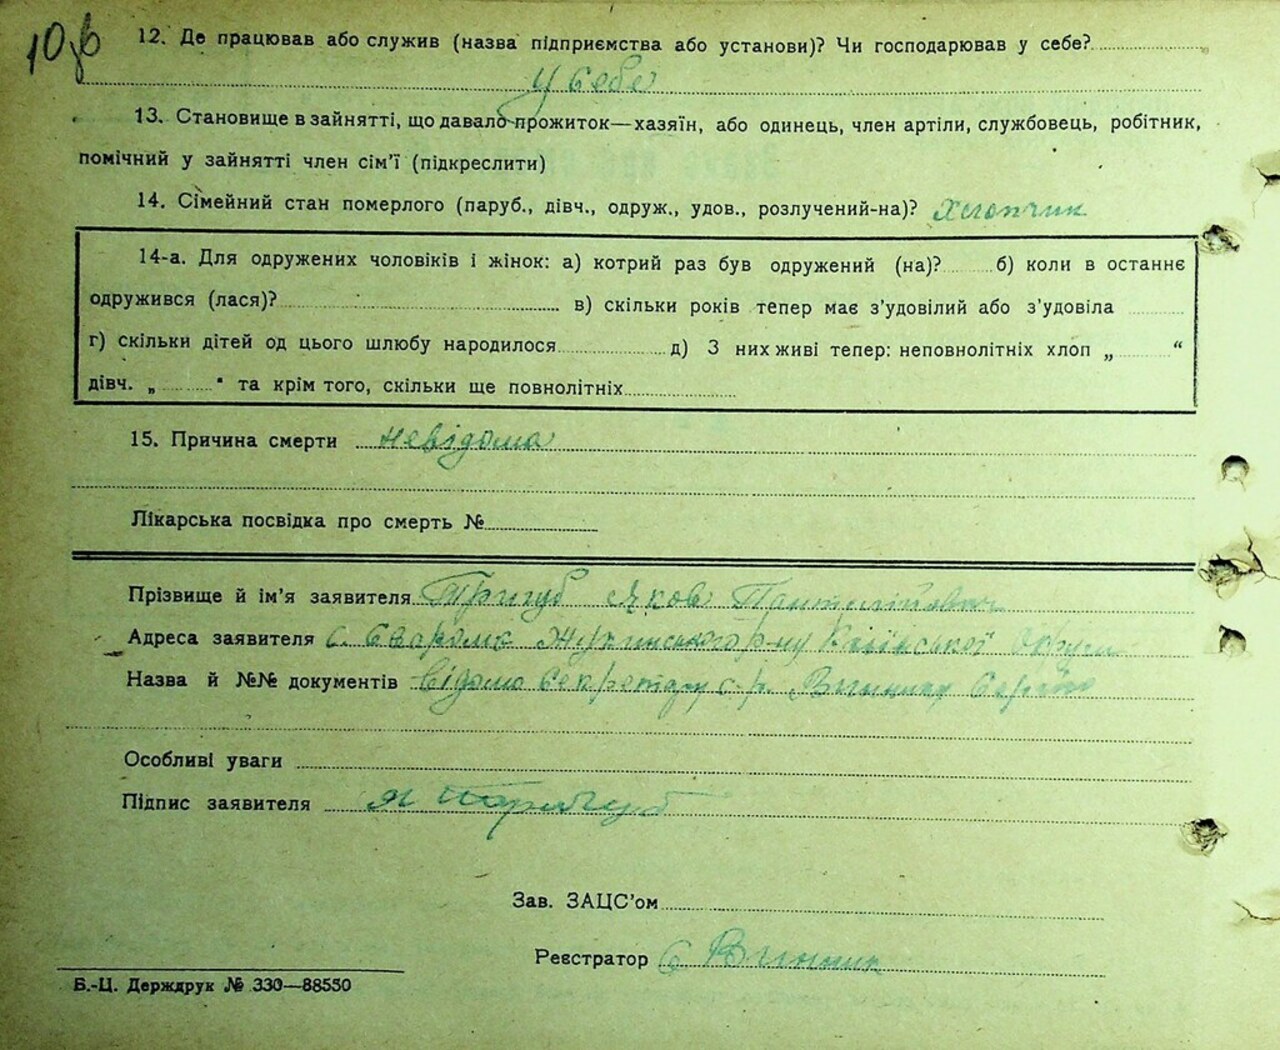 10
12. Де працював або служив (назва підприємства або установи)? Чи господарював у себе?
у себе
13. Становище в зайнятті, що давало прожиток—хазяїн, або одинець, член артілі, службовець, робітник,
помічний у зайнятті член сім'ї (підкреслити)
14. Сімейний стан померлого (паруб., дівч., одруж., удов., розлучений-на)? Хлопчик
14-а. Для одружених чоловіків і жінок: а) котрий раз був одружений (на)? б) коли в останнє
одружився (лася)? в) скільки років тепер має з'удовілий або з'удовіла
г) скільки дітей од цього шлюбу народилося д) З них живі тепер: неповнолітніх хлоп „ “
дівч. „ “ та крім того, скільки ще повнолітніх
15. Причина смерти невідома
Лікарська посвідка про смерть №
Прізвище й ім'я заявителя Тригуб Яков
Адреса заявителя с. Сваромє Жукинського р-ну Київської округи
Назва й №№ документів відомо секретару с-р. Виннику Сергію
Особливі уваги
Підпис заявителя Я
Зав. ЗАЦС'ом
Реєстратор С Винник
Б.-Ц. Держдрук № 330—88550